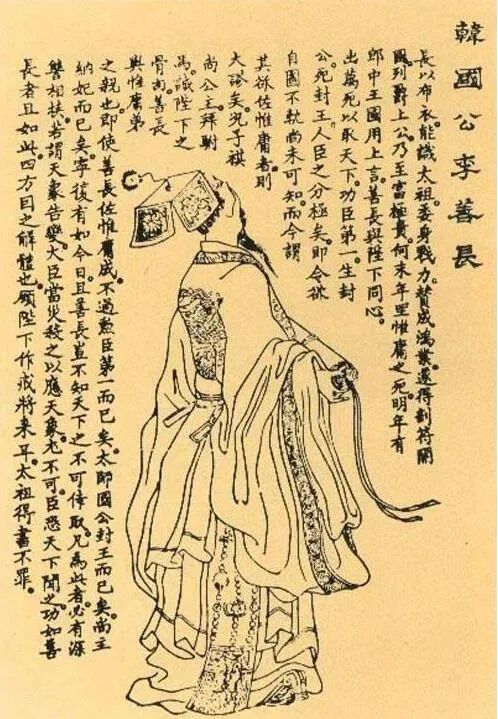 韓國公李善長
長以布衣能識太祖委身戰力贊成鴻業遂得剖符開
國列爵上公乃至富極貴何末年里惟庸之死明年有
郎中王國用上言善長與陛下同心
出萬死以取天下功臣第一生封
公死封王人臣之分極矣即令欲
自圖不軌尚未可知而今謂
其欲佐惟庸者則
大謬矣况子祺
尚公主拜駙
馬誠陛下之
骨肉善長
與惟庸第
之親也即使善長佐惟庸成不過勲臣第一而已矣太師國公封王而已矣尚主
納妃而已矣寧復有如今日且善長豈不知天下之不可倖取凡為此者必有深
讐相扶者謂天象告變大臣當災殺之以應天象尤不可臣恐天下聞之功如善
長者且如此四方因之解體也願陛下作戒將來耳太祖得書不罪